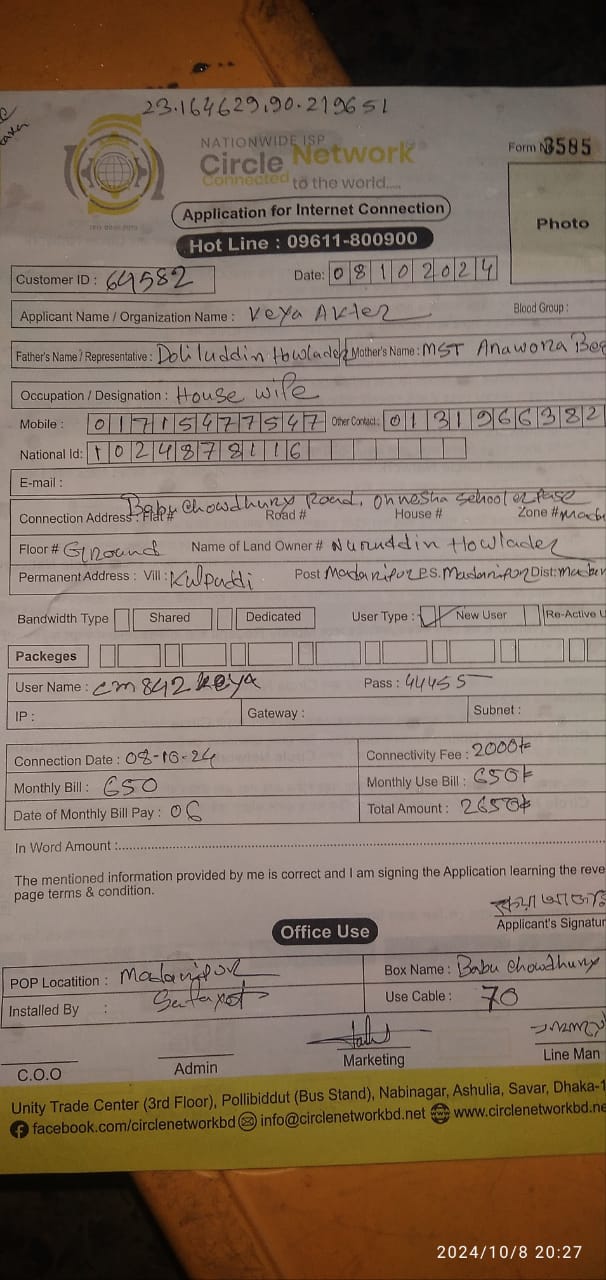 23.164629,90.219651
NATIONWIDE ISP
Circle Network
Connected to the world.....
Form № 3585
Application for Internet Connection
Photo
Hot Line : 09611-800900
Customer ID : 64582 Date: 08102024
Applicant Name / Organization Name : Keya Akter Blood Group :
Father's Name / Representative : Doliluddin Howlader Mother's Name : MST Anaworza Beg
Occupation / Designation : House wife
Mobile : 01715477547 Other Contact : 0131966382
National Id: 1024878116
E-mail :
Babu Chowdhury Road, Onnesha School
Connection Address : Flat # Road # House # Zone #
Floor # Ground Name of Land Owner # Nuruddin Howlader
Permanent Address : Vill : Kulpaddi Post Madaripur P.S. Madaripur Dist:
Bandwidth Type Shared Dedicated User Type : New User Re-Active U
Packeges
User Name : cm842keya Pass : 44455
IP : Gateway : Subnet :
Connection Date : 08-10-24 Connectivity Fee : 2000৳
Monthly Bill : 650 Monthly Use Bill : 650৳
Date of Monthly Bill Pay : 06 Total Amount : 2650৳
In Word Amount :
The mentioned information provided by me is correct and I am signing the Application learning the reve
page terms & condition.
Applicant's Signatur
Office Use
POP Locatition : Madaripur Box Name : Babu Chowdhury
Installed By : Use Cable : 70
C.O.O Admin Marketing Line Man
Unity Trade Center (3rd Floor), Pollibiddut (Bus Stand), Nabinagar, Ashulia, Savar, Dhaka-1
facebook.com/circlenetworkbd info@circlenetworkbd.net www.circlenetworkbd.ne
2024/10/8 20:27